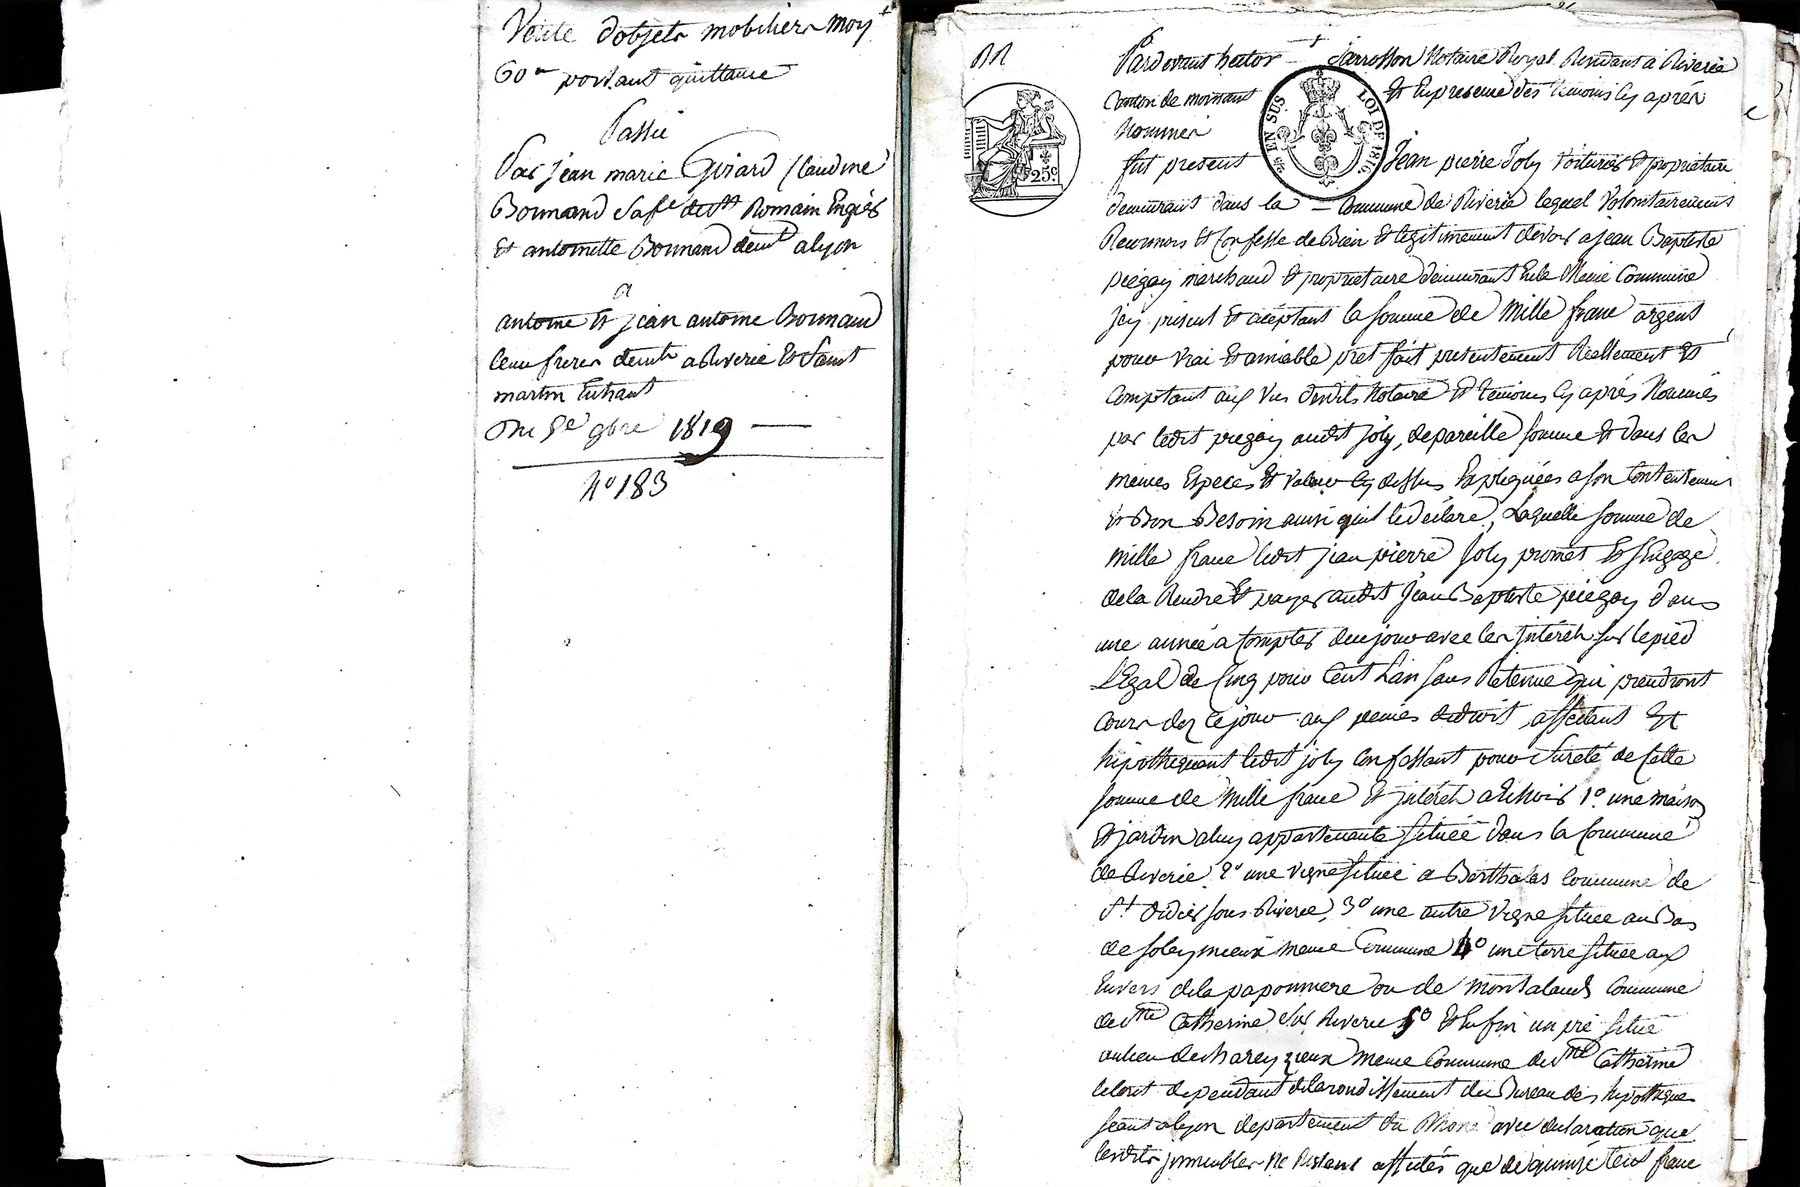 Vente d'objets mobiliers moy.t
60 m portant quittance
Passé
Par jean marie Girard Claudine
Bonnand sa fe de St Romain Engiér
Et antoinette Bonnand demt a lyon
a
antoine Et jean antoine Bonnand
leur freres demts a Riverie Et Saint
martin Enhaut
Du 5e 9bre 1819
No 183
Pardevant hector Jarrosson Notaire Royal Residant a Riverie
Canton de mornant Et En presence des temoins cy aprés
Nommés
EN SUS LOI DE 1816
25c
fut present Jean pierre Joly voiturier Et proprietaire
demeurant dans la Commune de Riverie lequel volontairement
Reconnois Et Confesse de Bien Et legitimement devoir a jean Baptiste
piegay marchand Et proprietaire demeurant En la Meme Commune
Icy présent Et acéptant la somme de Mille franc argent
pour vrai Et amiable pret fait presentement Réellement Et
Comptant aux vus dudit Notaire Et temoins cy aprés Nommés
par ledit piegay audit joly, de pareille somme Et dans les
memes Especes Et valeur cy dessus Expliquées a son Contentement
Et Bon Besoin ainsi qu'il le déclare, Laquelle somme de
Mille franc ledit jean pierre Joly promet Et s'Engage
de la Rendre Et payer audit Jean Baptiste piegay dans
une année a Compter de ce jour avec les jntérêts sur le pied
LEgal de Cinq pour Cent L'an sans Retenue qui prendront
Cours dez ce jour aux peines de droit, affectant Et
hipothequant ledit joly Confessant pour sureté de Cette
somme de Mille franc Et jntérêt a Echoir 1o une maison
Et jardin a luy appartenante située dans la Commune
de Riverie 2o une vigne située a Bertholes Commune de
St didier sous Riverie, 3o une autre vigne située au Bas
de soleymieux meme Commune 4o une terre située aux
Envers de la paponniere ou de montaland Commune
de Ste Catherine sur Riverie 5o Et Enfin un pré situé
au lieu de chareyzieux Meme Commune de Ste Catherine
le tout dependant de larondissement du Bureau des hipotheques
séant a lyon departement du Rhone avec declaration que
lesdits jmmeubles Ne Restent affectés que de quinze Cent franc